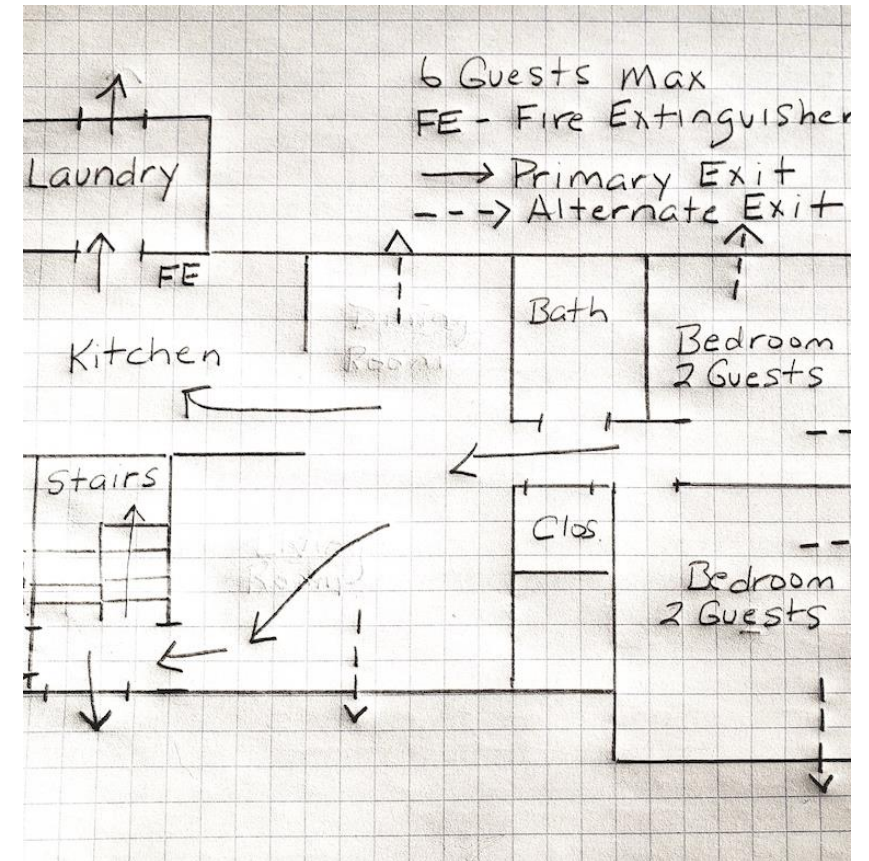 6 Guests max
FE - Fire Extinguisher
→ Primary Exit
---> Alternate Exit
Laundry
FE
Kitchen
Room
Bath
Bedroom
2 Guests
Stairs
Clos.
Bedroom
2 Guests